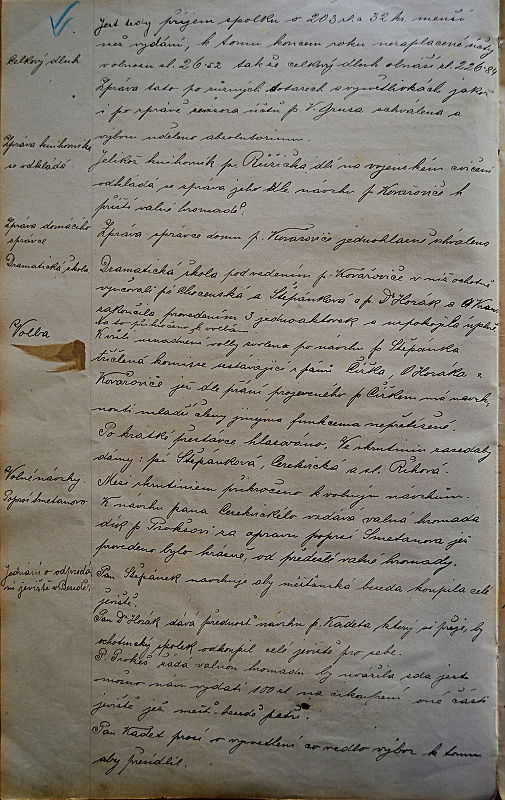 Jest tedy příjem spolku o 203 zl. a 32 kr. menší
než vydání, k tomu koncem roku nezaplacené účty
Celkový dluh
v obnosu zl. 26·52 takže celkový dluh obnáší zl. 226·84
Zpráva tato po různých dotazech a vysvětlivkách jakož
i po zprávě revisora účtů p. V. Grusa schválena a
výboru uděleno absolutorium.
Zpráva knihovníka
se odkládá
Jelikož knihovník p. Růžička dlí na vojenském cvičení
odkládá se zpráva jeho dle návrhu p. Kovařoviče k
příští valné hromadě.
Zpráva domácího
správce
Zpráva správce domu p. Kovařoviče jednohlasně schválena
Dramatická škola
Dramatická škola pod vedením p. Kovařoviče v níž ochotně
vyučovali pí Chocenská a Štěpánková a p. Dr Horák a
zakončila provedením 3 jednoaktovek a uspokojila úplně
Volba
Ku to přikročeno k volbám.
K vůli usnadnění volby zvolena po návrhu p. Štěpánka
tříčlená komisse sestávající z pánů Čířka, Horáka a
Kovařoviče jež dle přání projeveného p. Čířkem má navrh-
nouti mladší členy jinýma funkcema nepřetížené.
Po krátké přestávce hlasováno. Ve skrutiniu zasedaly
dámy: pí Štěpánková, Cerekvická a sl. Říhová.
Volné návrhy
Mezi skrutiniem přikročeno k volným návrhům.
Poprsí Smetanovo
K návrhu pana Cerekvického vzdává valná hromada
dík p. Prokšovi za opravu poprsí Smetanova jež
provedeno bylo krásně, od předešlé valné hromady.
Jednání o odprodá-
ní jeviště v Besedě.
Pan Štěpánek navrhuje aby měšťanská beseda koupila celé
jeviště.
Pan Dr Horák dává přednost návrhu p. Kadeta, který si přeje, by
ochotnický spolek odkoupil celé jeviště pro sebe.
P. Prokeš žádá valnou hromadu by uvážila zda jest
možno nám vydati 100 zl na zakoupení oné části
jeviště jež měšť. besedě patří.
Pan Kadet prosí o vysvětlení co vedlo výbor k tomu
aby